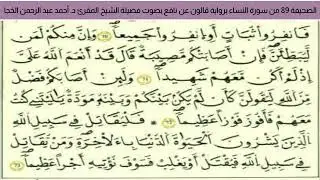 الصحيفة 89 من سورة النساء برواية قالون عن نافع بصوت فضيلة الشيخ المقرئ د. أحمد عبد الرحمن الخجا
فَانفِرُواْ ثُبَاتٍ أَوِ اِنفِرُواْ جَمِيعاً وَإِنَّ مِنكُمْ لَمَن
لَّيُبَطِّئَنَّ فَإِنْ أَصَابَتْكُم مُّصِيبَةٌ قَالَ قَدْ أَنْعَمَ اَللَّهُ عَلَيَّ
إِذْ لَمْ أَكُن مَّعَهُمْ شَهِيداً وَلَئِنْ أَصَابَكُمْ فَضْلٌ
مِّنَ اَللَّهِ لَيَقُولَنَّ كَأَن لَّمْ يَكُنْ بَيْنَكُمْ وَبَيْنَهُ مَوَدَّةٌ يَٰلَيْتَنِي كُنتُ
مَعَهُمْ فَأَفُوزَ فَوْزاً عَظِيماً فَلْيُقَاتِلْ فِي سَبِيلِ اِللَّهِ
اِلذِينَ يَشْرُونَ اَلْحَيَوٰةَ اَلدُّنْيَا بِالَاخِرَةِ وَمَنْ يُّقَاتِلْ
فِي سَبِيلِ اِللَّهِ فَيُقْتَلْ أَوْ يَغْلِبْ فَسَوْفَ نُؤْتِيهِ أَجْراً عَظِيماً